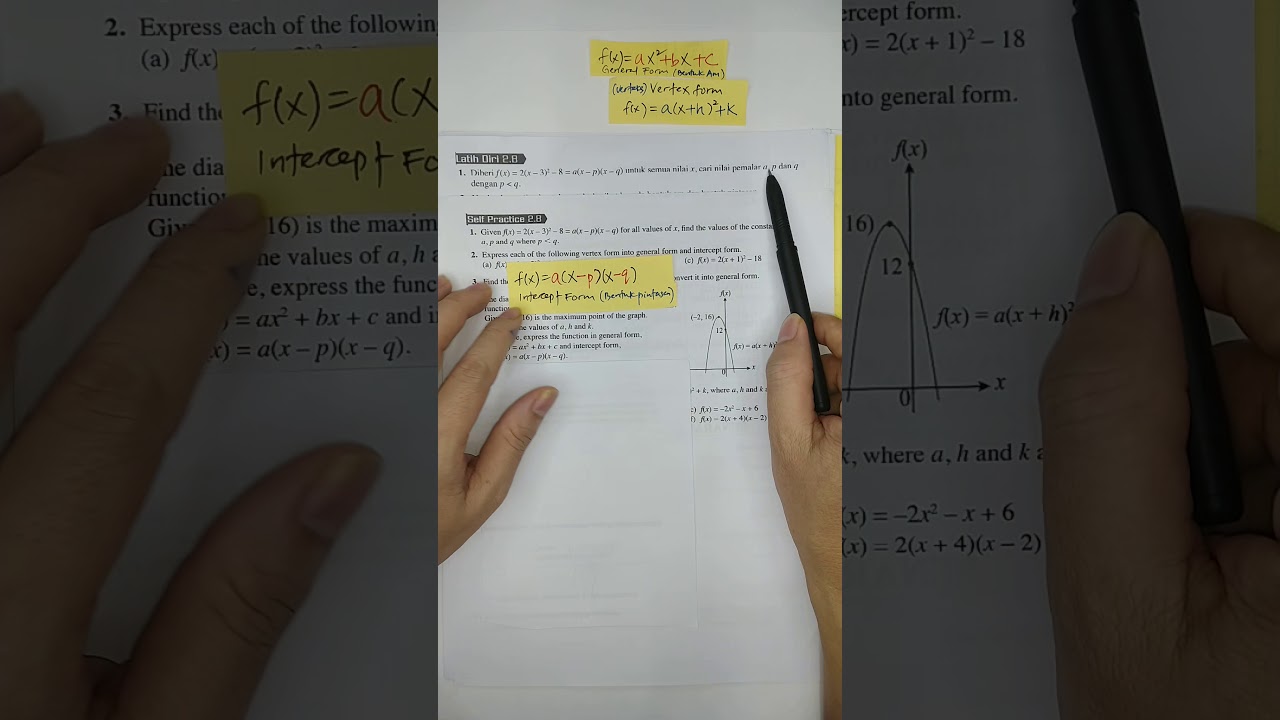 f(x)=ax²+bx+c
General Form (Bentuk Am)
(verteks) Vertex form
f(x) = a(x+h)²+k
Latih Diri 2.8
1. Diberi f(x) = 2(x – 3)² – 8 = a(x – p)(x – q) untuk semua nilai x, cari nilai pemalar a, p dan q
dengan p < q.
Self Practice 2.8
1. Given f(x) = 2(x – 3)² – 8 = a(x – p)(x – q) for all values of x, find the values of the
a, p and q where p < q.
2. Express each of the following vertex form into general form and intercept form.
(a) f(x) (c) f(x) = 2(x + 1)² – 18
3. Find the into general form.
f(x)=a(x-p)(x-q)
Intercept Form (Bentuk pintasan)
f(x)
(–2, 16)
12
f(x) = a(x + h)²
0
x
16) is the maximum point of the graph.
the values of a, h and k.
express the function in general form,
= ax² + bx + c and intercept form,
= a(x – p)(x – q).
+ k, where a, h and k
f(x) = –2x² – x + 6
f(x) = 2(x + 4)(x – 2)
2. Express each of the following
(a) f(x)
3. Find the
f(x)=a(x
Intercept
function
16) is the maxim
values of a, h
express the func
= ax² + bx + c and i
= a(x – p)(x – q).
ercept form.
x) = 2(x + 1)² – 18
nto general form.
f(x)
16)
12
f(x) = a(x + h)²
0
x
k, where a, h and k
(x) = –2x² – x + 6
(x) = 2(x + 4)(x – 2)